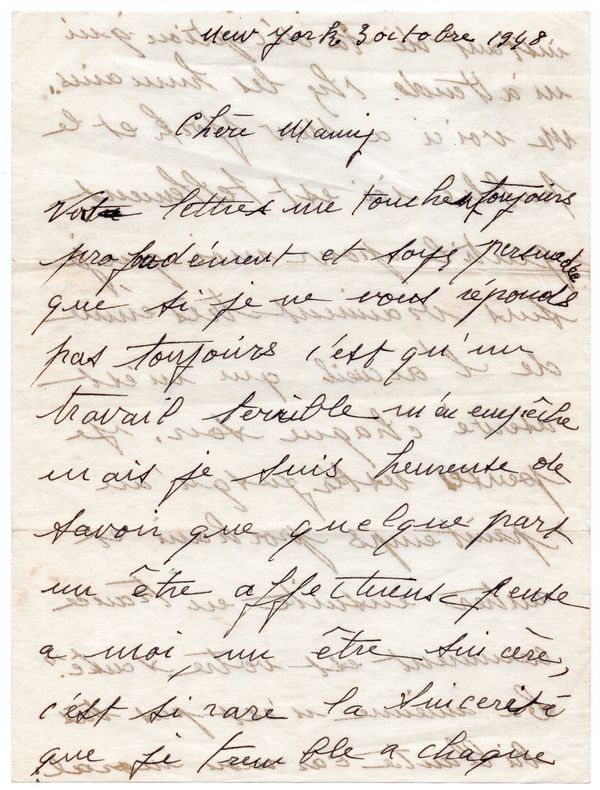 New York 3 octobre 1948
Chère Mamy
Vos lettres me touchent toujours
profodément et soyez persuadée
que si je ne vous réponds
pas toujours c'est qu'un
travail terrible m'en empêche
mais je suis heureuse de
savoir que quelque part
un être affectueux pense
a moi, un être sincère,
c'est si rare la sincerité
que je tremble a chaque